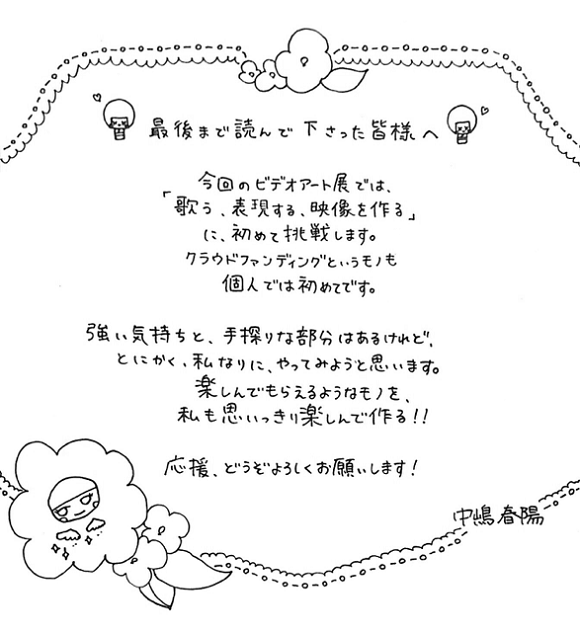 最後まで読んで下さった皆様へ
今回のビデオアート展では、
「歌う、表現する、映像を作る」
に、初めて挑戦します。
クラウドファンディングというモノも
個人では初めてです。
強い気持ちと、手探りな部分はあるけれど、
とにかく、私なりに、やってみようと思います。
楽しんでもらえるようなモノを、
私も思いっきり楽しんで作る!!
応援、どうぞよろしくお願いします!
中嶋春陽